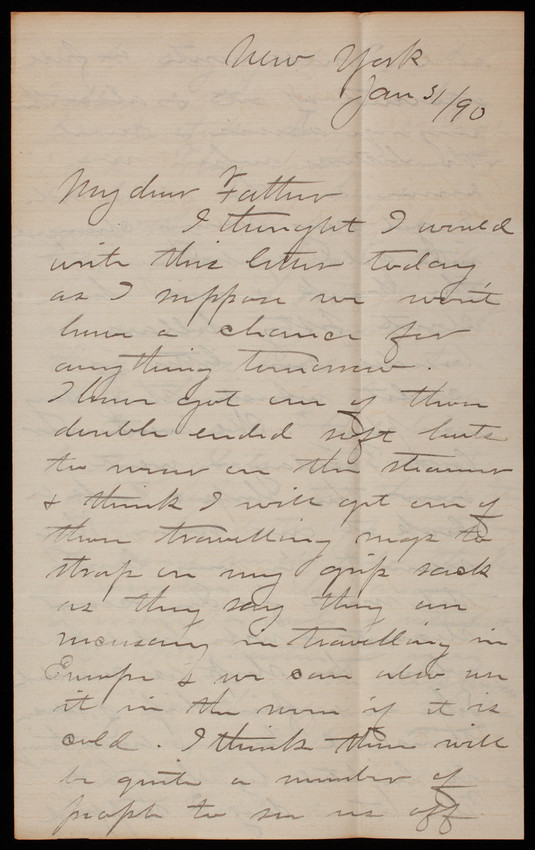 New York
Jan 31/90
My dear Father
I thought I would
write this letter today
as I suppose we won't
have a chance for
anything tomorrow.
I have got one of those
double ended soft hats
to wear on the steamer
& think I will get one of
those travelling rugs to
strap on my grip sack
as they say they are
necessary in travelling in
Europe & we can also use
it in the room if it is
cold. I think there will
be quite a number of
people to see us off